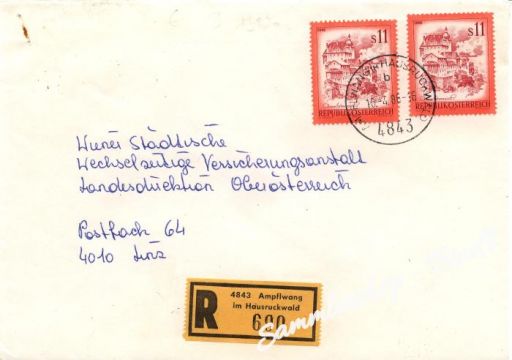 S11
REPUBLIK ÖSTERREICH
S11
REPUBLIK ÖSTERREICH
AMPFLWANG IM HAUSRUCKWALD
b
4843
Wiener Städtische
Wechselseitige Versicherungsanstalt
Landesdirektion Oberösterreich
Postfach 64
4010 Linz
R
4843 Ampflwang
im Hausruckwald